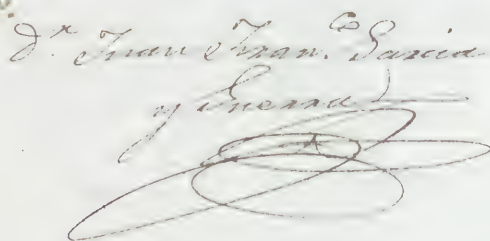 Dn. Juan Franco. Garcia
y Guerra